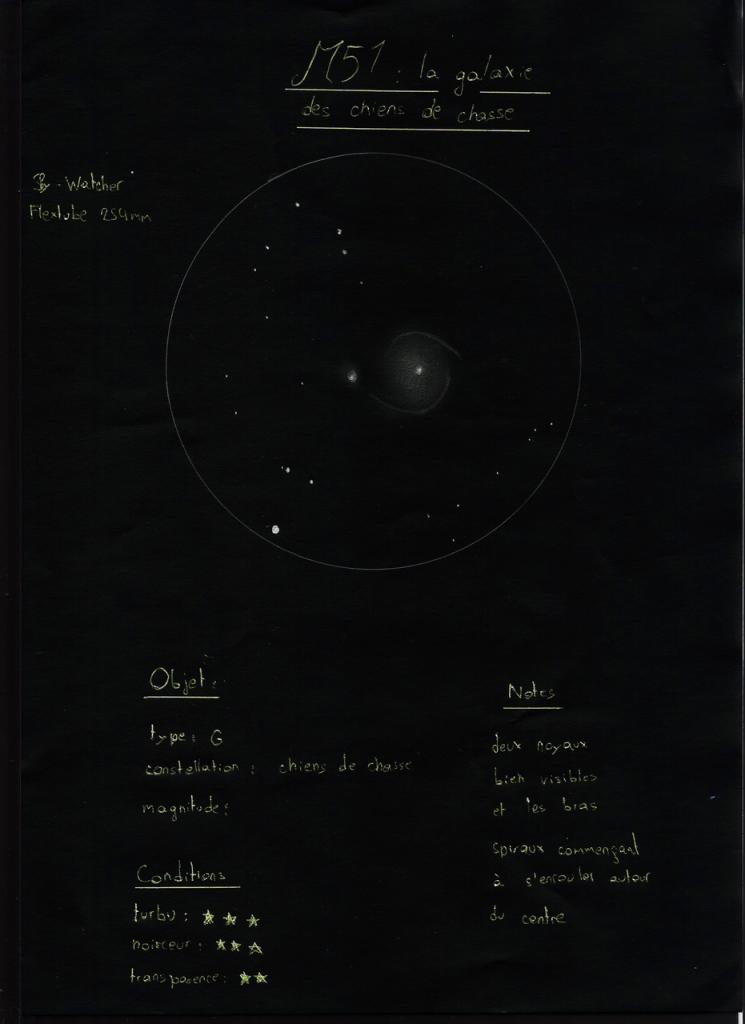 M51 : la galaxie
des chiens de chasse
By - Watcher
Flextube 254mm
Objet :
type : G
constellation : chiens de chasse
magnitude :
Conditions
turbu : ★ ★ ★
noirceur : ★ ★ ☆
transparence : ★ ★
Notes
deux noyaux
bien visibles
et les bras
spiraux commençant
à s'enrouler autour
du centre